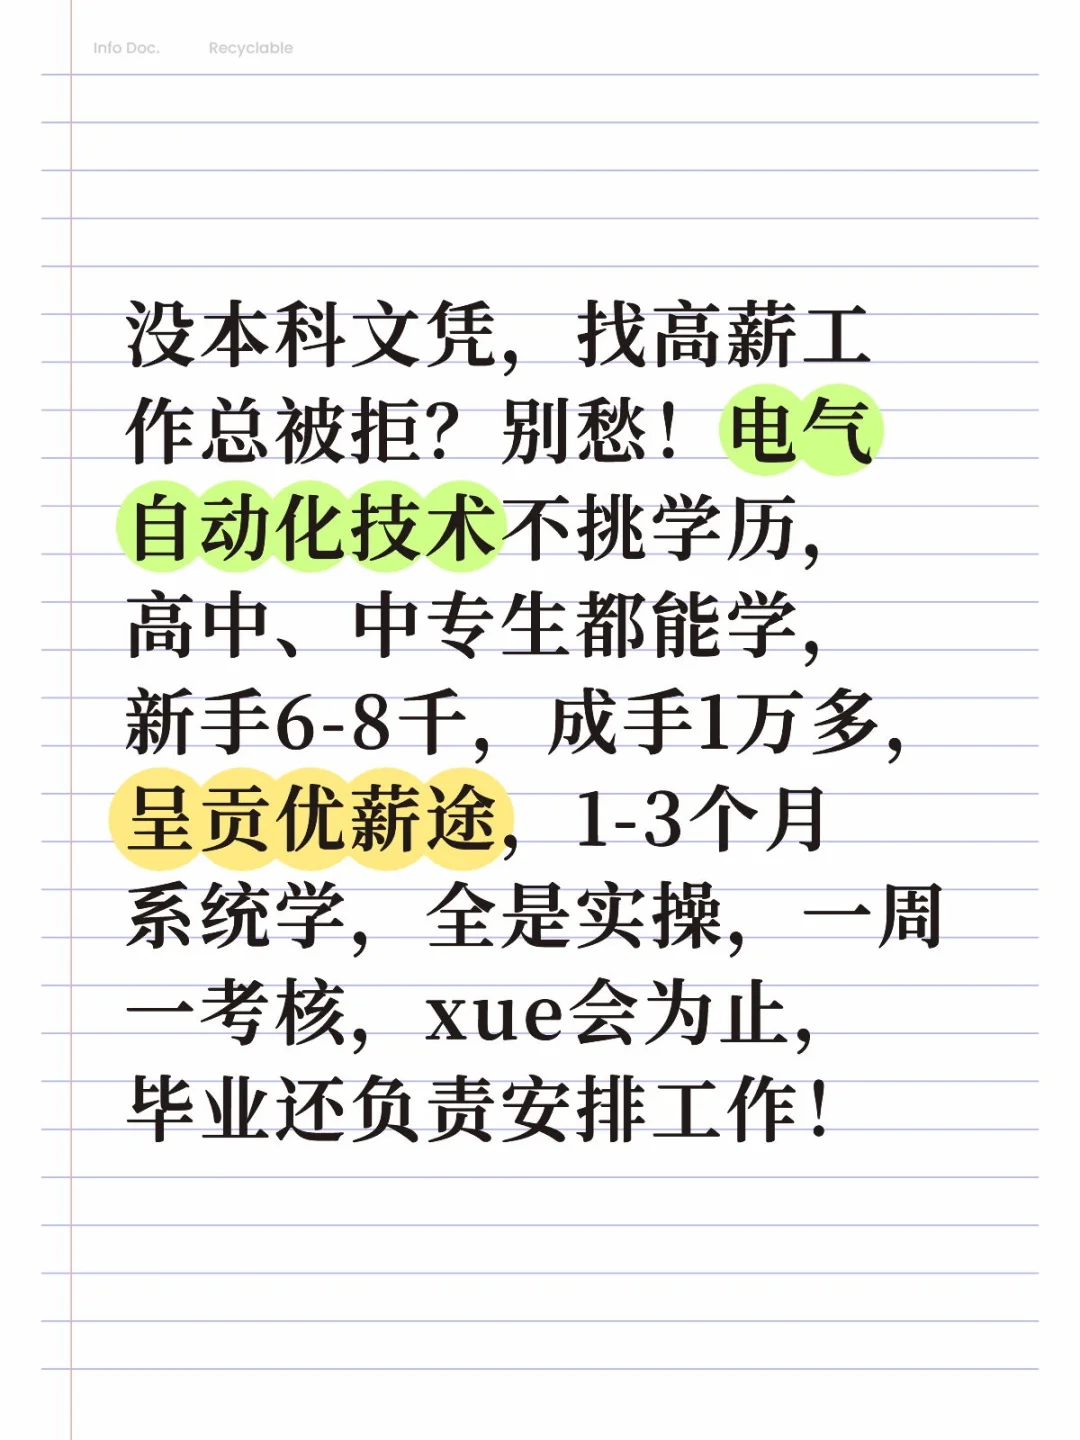 Info Doc. Recyclable
没本科文凭，找高薪工
作总被拒？别愁！电气
自动化技术不挑学历，
高中、中专生都能学，
新手6-8千，成手1万多，
呈贡优薪途，1-3个月
系统学，全是实操，一周
一考核，xue会为止，
毕业还负责安排工作！